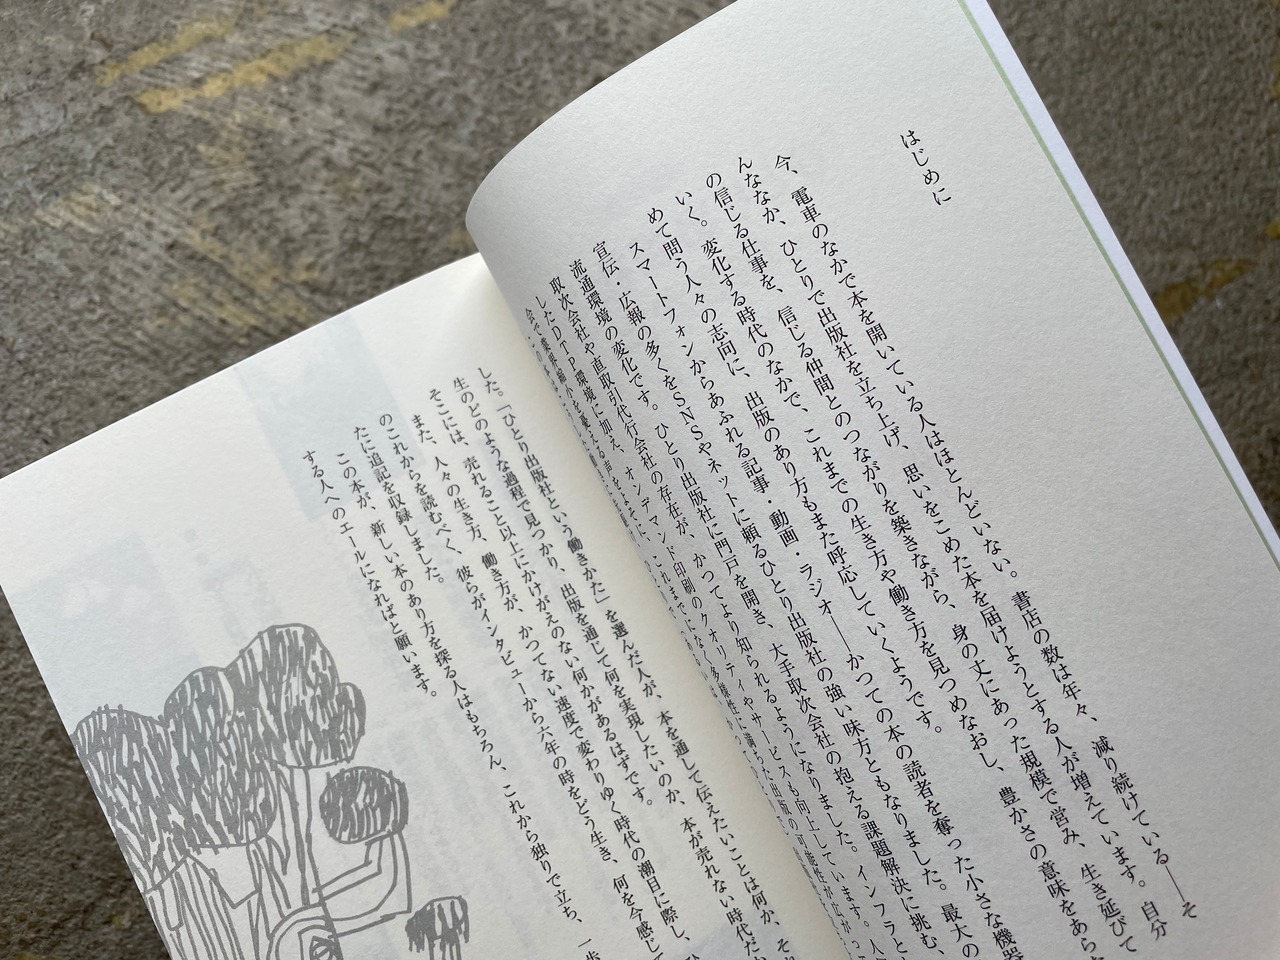 はじめに
今、電車のなかで本を開いている人はほとんどいない。書店の数は年々、減り続けている――そ
んななか、ひとりで出版社を立ち上げ、思いをこめた本を届けようとする人が増えています。自分
の信じる仕事を、信じる仲間とのつながりを築きながら、身の丈にあった規模で営み、生き延びて
いく。変化する時代のなかで、これまでの生き方や働き方を見つめなおし、豊かさの意味をあらた
めて問う人々の志向に、出版のあり方もまた呼応していくようです。
スマートフォンからあふれる記事・動画・ラジオ――かつての本の読者を奪った小さな機器
宣伝・広報の多くをSNSやネットに頼るひとり出版社の強い味方ともなりました。最大の
流通環境の変化です。ひとり出版社に門戸を開き、大手取次会社の抱える課題解決に挑む、
取次会社や直取引代行会社の存在が、かつてより知られるようになりました。インフラと
したDTP環境に加え、オンデマンド印刷のクオリティやサービスも向上しています。
した。「ひとり出版社という働きかた」を選んだ人が、本を通して伝えたいことは何か、
生のどのような過程で見つかり、出版を通じて何を実現したいのか、本が売れない時代だか
そこには、売れること以上にかけがえのない何かがあるはずです。
また、人々の生き方、働き方が、かつてない速度で変わりゆく時代の潮目に際し、
のこれからを読むべく、彼らがインタビューから六年の時をどう生き、何を今感じて
たに追記を収録しました。
この本が、新しい本のあり方を探る人はもちろん、これから独りで立ち、一歩
する人へのエールになればと願います。